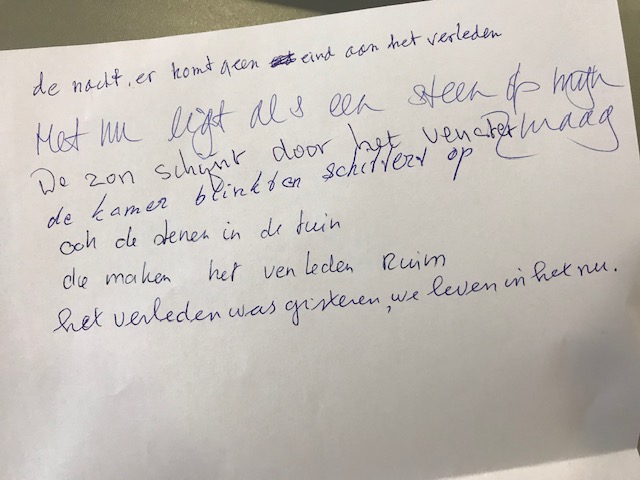 de nacht, er komt geen eind aan het verleden
Het nu ligt als een steen op mijn maag
De zon schijnt door het venster
de kamer blinkt en schittert op
ook de stenen in de tuin
die maken het verleden Ruim
het verleden was gisteren, we leven in het nu.